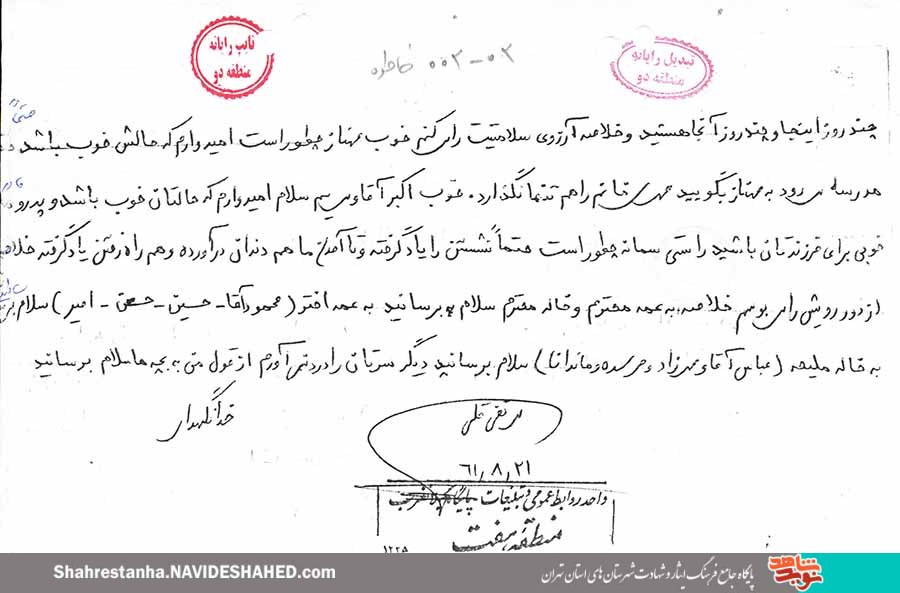 تایپ رایانه
منطقه دو
۰۰۲-۰۳ خاطره
تبدیل رایانه
منطقه دو
چند روز اینجا و چند روز آنجا هستید و خلاصه آرزوی سلامتیت را می کنم خوب مهناز چطور است امیدوارم که حالش خوب باشد
مدرسه می رود به مهناز بگویید مهری خانم را هم تنها نگذارد. خوب اکبر آقا و مریم سلام امیدوارم که حالتان خوب باشد و پدر و
خوبی برای فرزندتان باشید راستی سمانه چطور است حتماً نشستن را یاد گرفته و تا آمدن ما هم دندان درآورده و هم راه رفتن یاد گرفته خلاصه
از دور رویش را می بوسم خلاصه به عمه محترم و خاله محترم سلام برسانید به عمه اختر (محمود آقا - حسین - حسن - امیر) سلام
به خاله ملیحه (عباس آقا و بهرزاد و ماندانا) سلام برسانید دیگر سرتان را درد نمی آورم از قول من به بچه ها سلام برسانید
خدانگهدار
مرتضی
۶۱/۸/۲۱
واحد روابط عمومی و تبلیغات پایگاه
منطقه هفت
۱۲۲۵
Shahrestanha.NAVIDESHAHED.com
پایگاه جامع فرهنگ ایثار و شهادت شهرستان های استان تهران
نوید شاهد